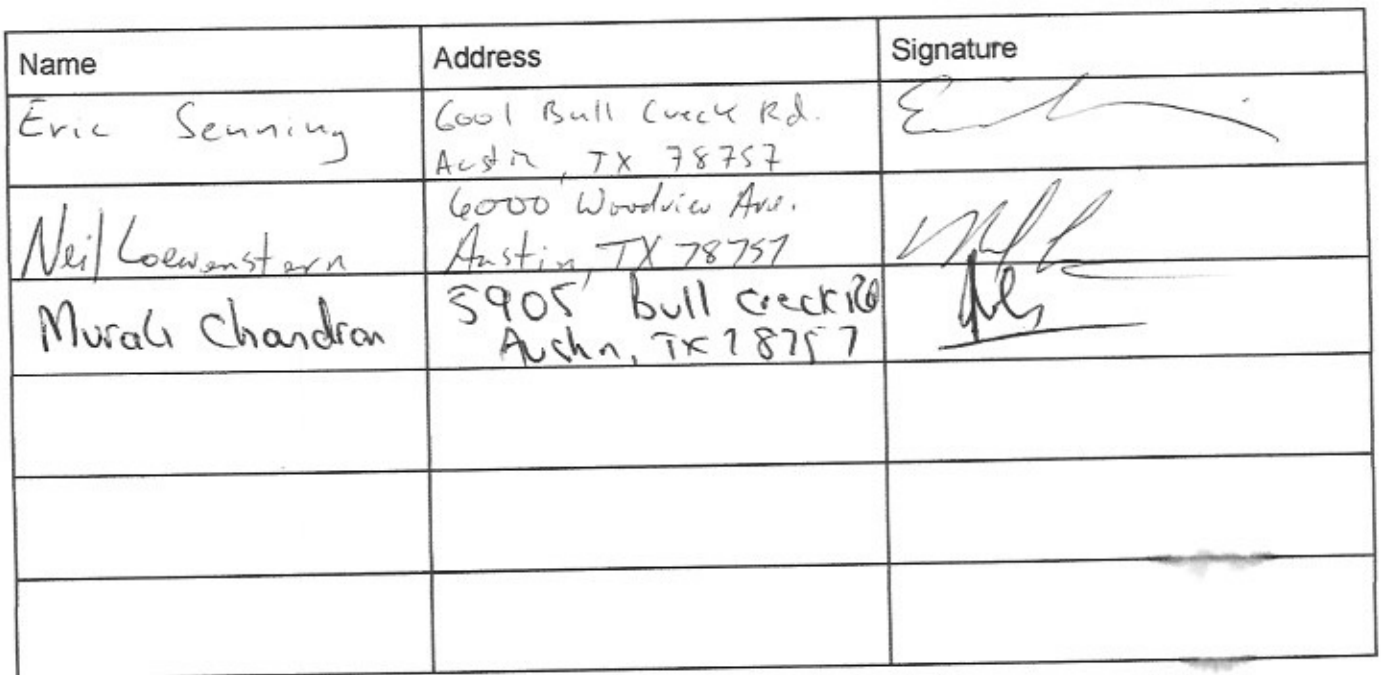 Name Address Signature
Eric Senning 6001 Bull Creek Rd.
Austin, TX 78757
6000 Woodview Ave.
Neil Loewenstern Austin, TX 78757
Murali Chandran 5905 Bull Creek Rd
Austin, TX 78757